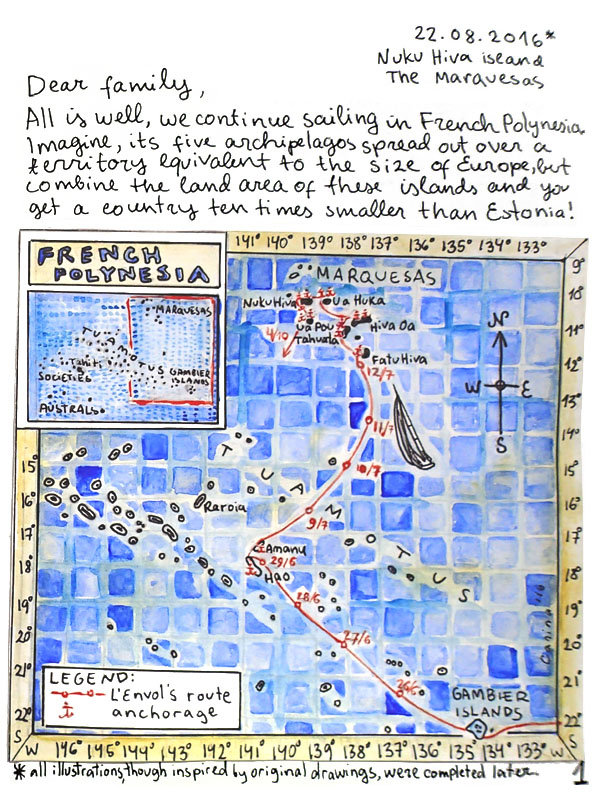 22.08.2016*
Nuku Hiva island
The Marquesas
Dear family,
All is well, we continue sailing in French Polynesia.
Imagine, its five archipelagos spread out over a
territory equivalent to the size of Europe, but
combine the land area of these islands and you
get a country ten times smaller than Estonia!
FRENCH
POLYNESIA
MARQUESAS
TUAMOTUS
Tahiti
SOCIETIES
GAMBIER
ISLANDS
AUSTRALS
141° 140° 139° 138° 137° 136° 135° 134° 133°
9°
10°
11°
12°
13°
14°
15°
16°
17°
18°
19°
20°
21°
22°
S
MARQUESAS
Nuku Hiva
Ua Huka
Ua Pou
Hiva Oa
Tahuata
4/10
Fatu Hiva
12/7
11/7
10/7
9/7
N
W E
S
TUAMOTUS
Raroia
Amanu
29/6
Hao
28/6
27/6
26/6
GAMBIER
ISLANDS
15°
16°
17°
18°
19°
20°
21°
22°
S
LEGEND:
L'Envol's route
anchorage
W 146° 145° 144° 143° 142° 141° 140° 139° 138° 137° 136° 135° 134° 133° W
* all illustrations, though inspired by original drawings, were completed later.
1